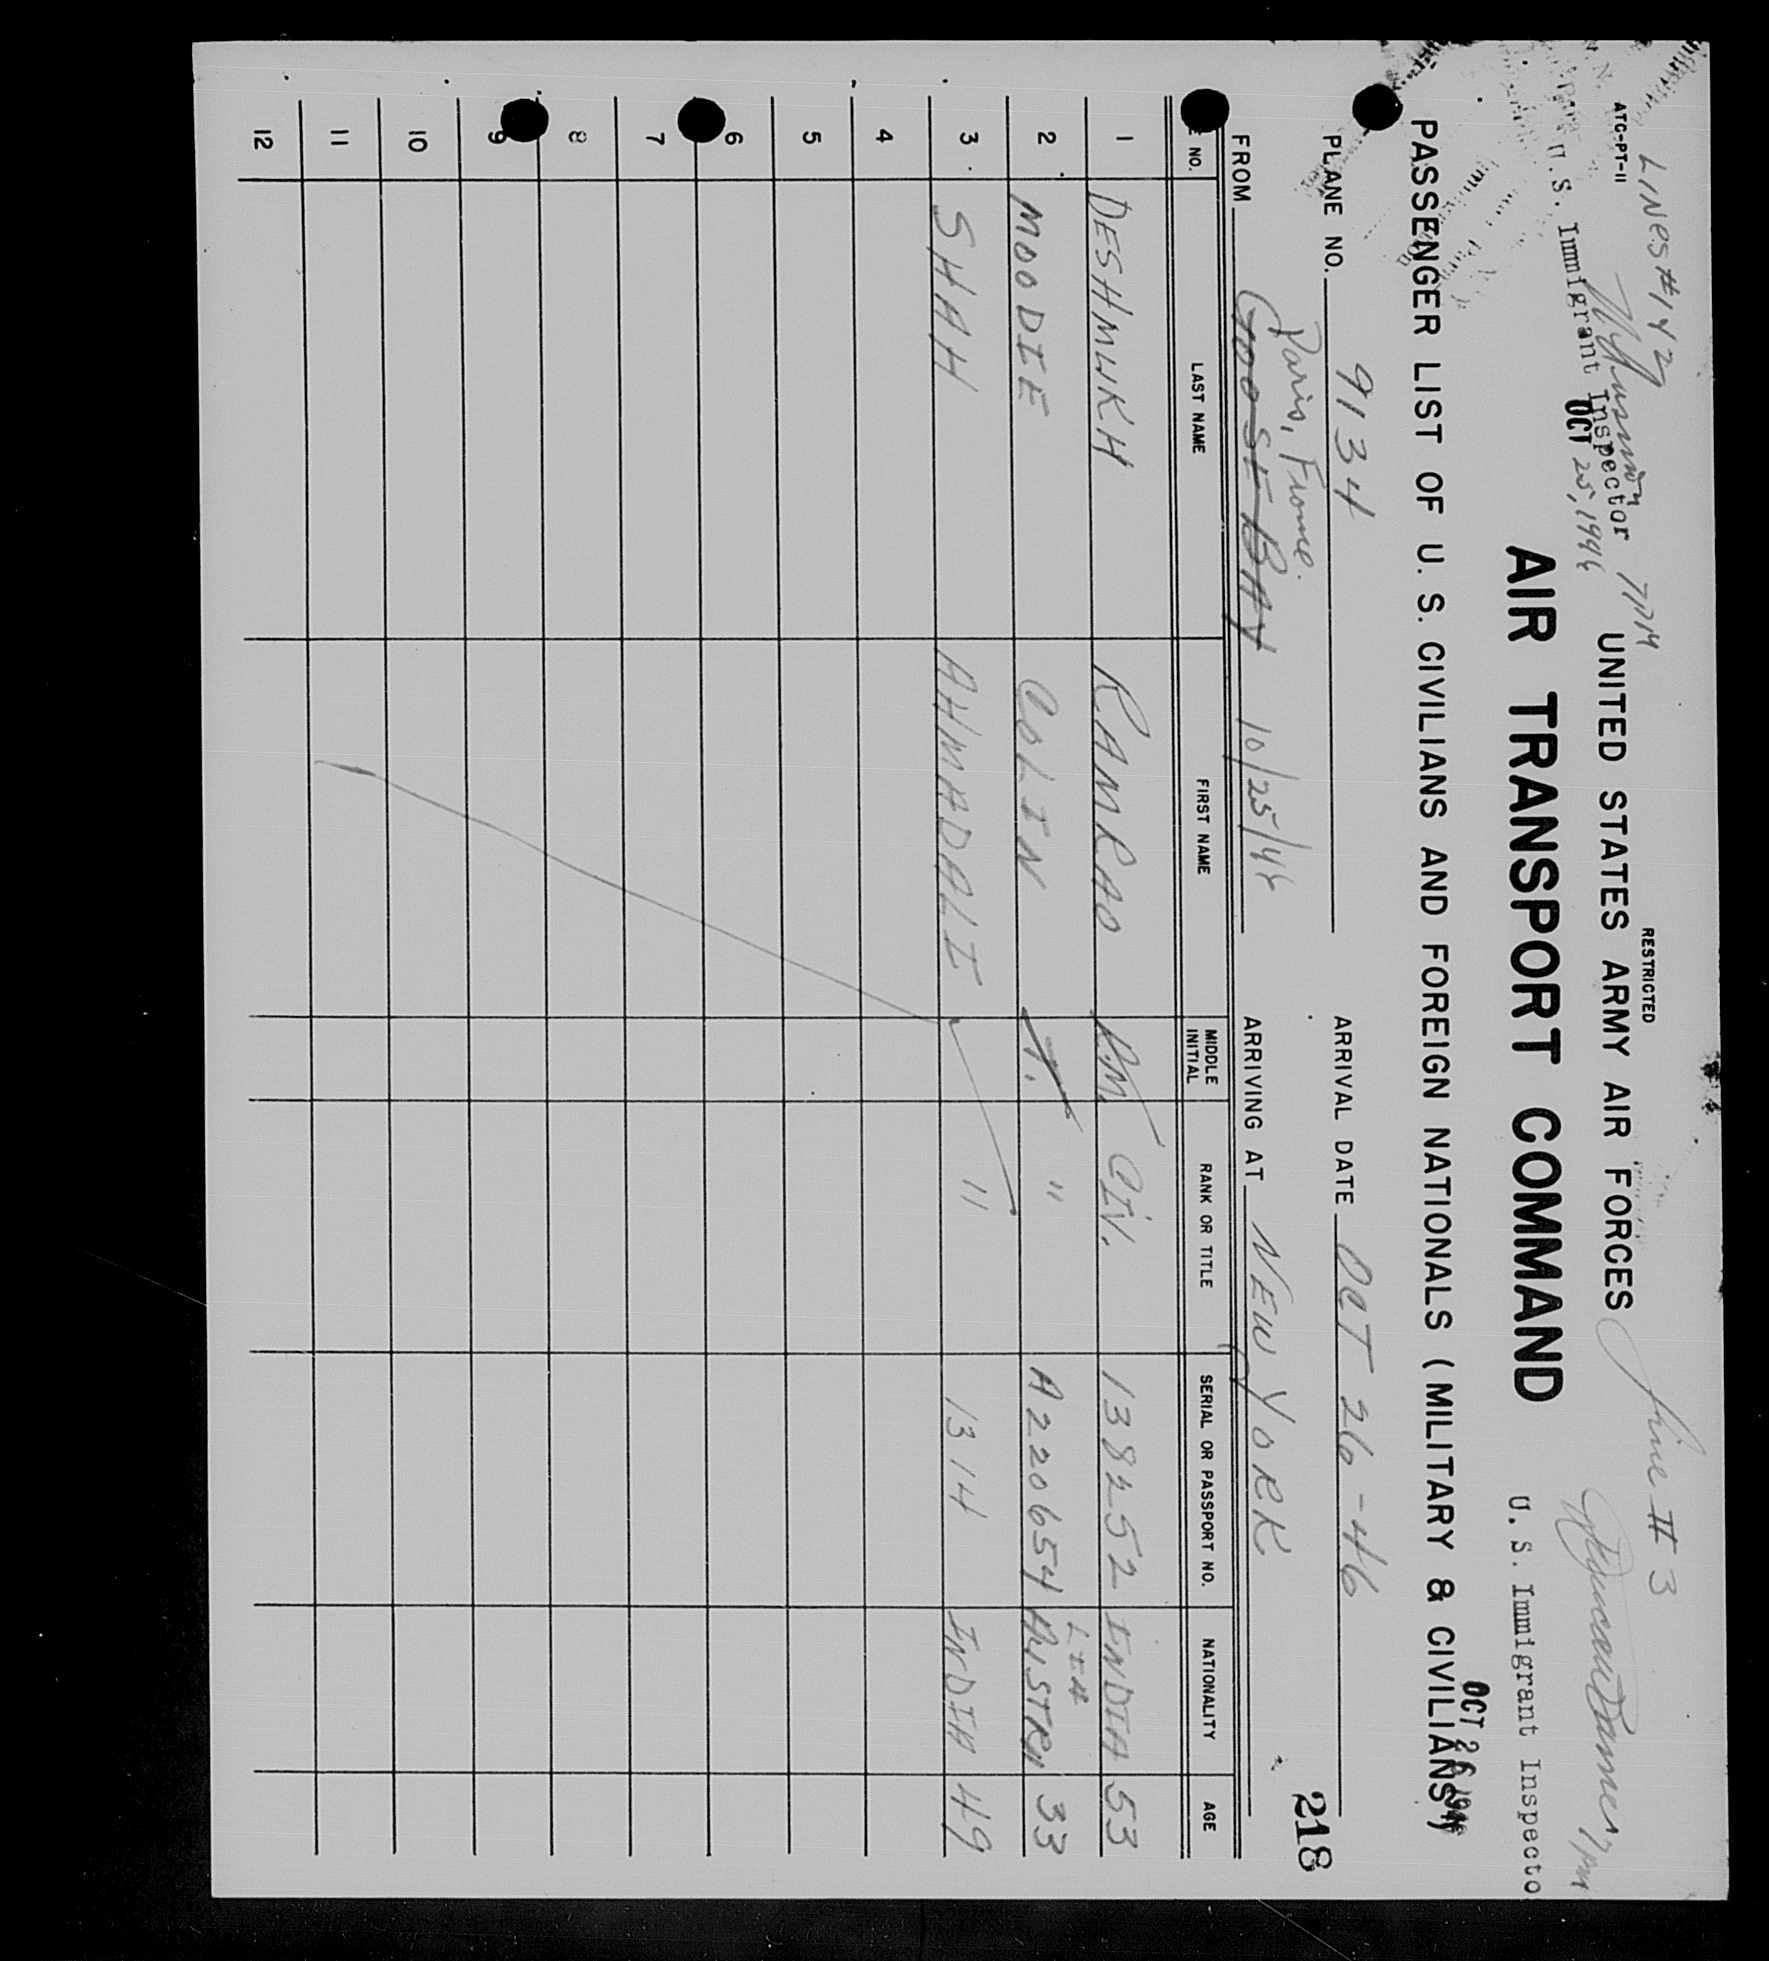 LINES # 1 Y 2
Line # 3
ATC-PT-11
RESTRICTED
7 PM
7 PM
U.S. Immigrant Inspector
OCT 25, 1946
UNITED STATES ARMY AIR FORCES
AIR TRANSPORT COMMAND
U. S. Immigrant Inspecto
OCT 26 1946
PASSENGER LIST OF U. S. CIVILIANS AND FOREIGN NATIONALS (MILITARY & CIVILIANS)
218
PLANE NO. 9134 ARRIVAL DATE OCT 26-46
Paris, France.
FROM GOOSE BAY 10/25/46 ARRIVING AT NEW YORK
NO. LAST NAME FIRST NAME MIDDLE INITIAL RANK OR TITLE SERIAL OR PASSPORT NO. NATIONALITY AGE
1 DESHMUKH RAMRAO M. CIV. 138252 INDIA 53
2 MOODIE COLIN T. " A220654 AUSTRALIA 33
3 SHAH AHMADALI " 1314 INDIA 49
4
5
6
7
8
9
10
11
12